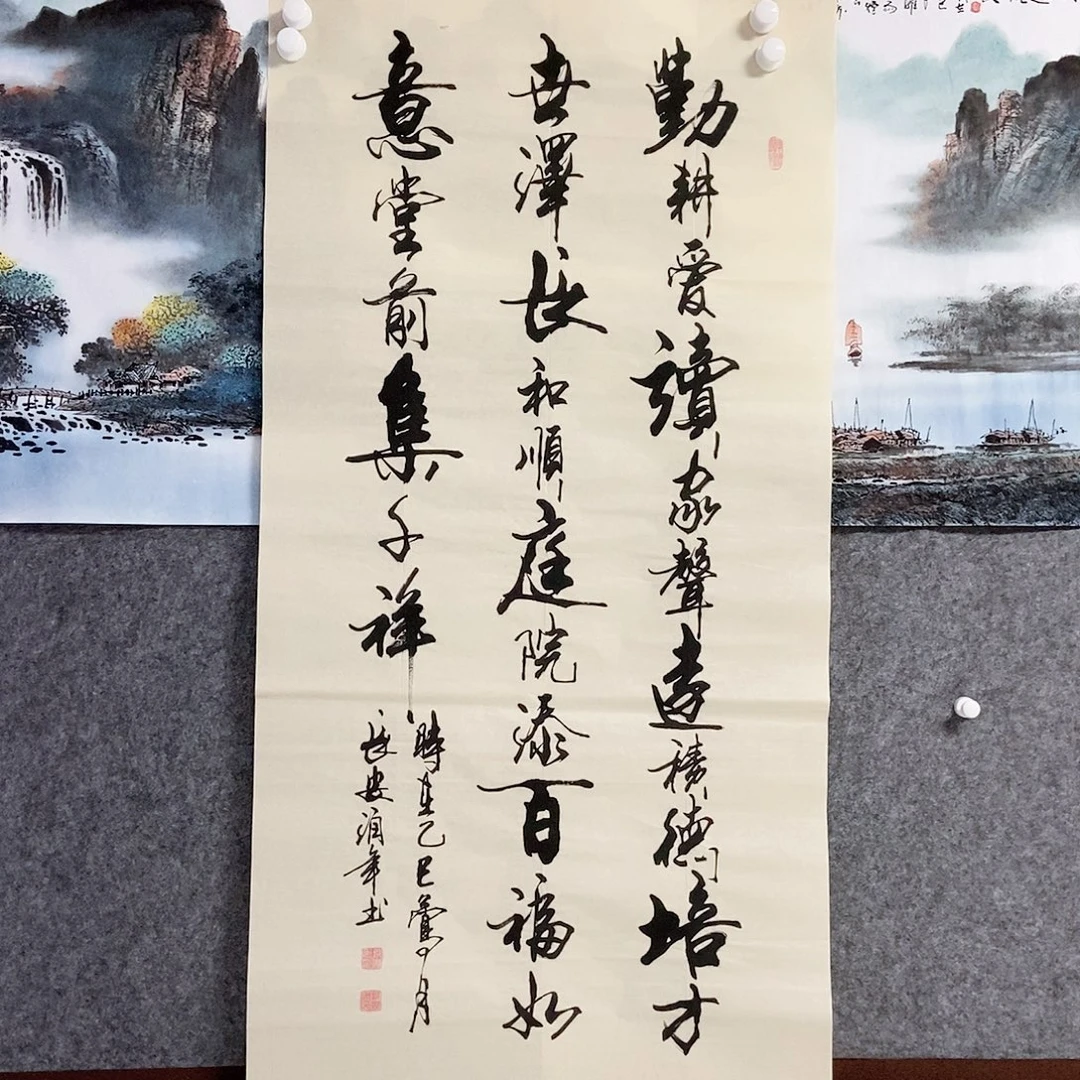 勤耕爱讀家聲遠積德培才
世澤長和順庭院添百福如
意堂前集千祥
時在乙巳月
長安潤年书